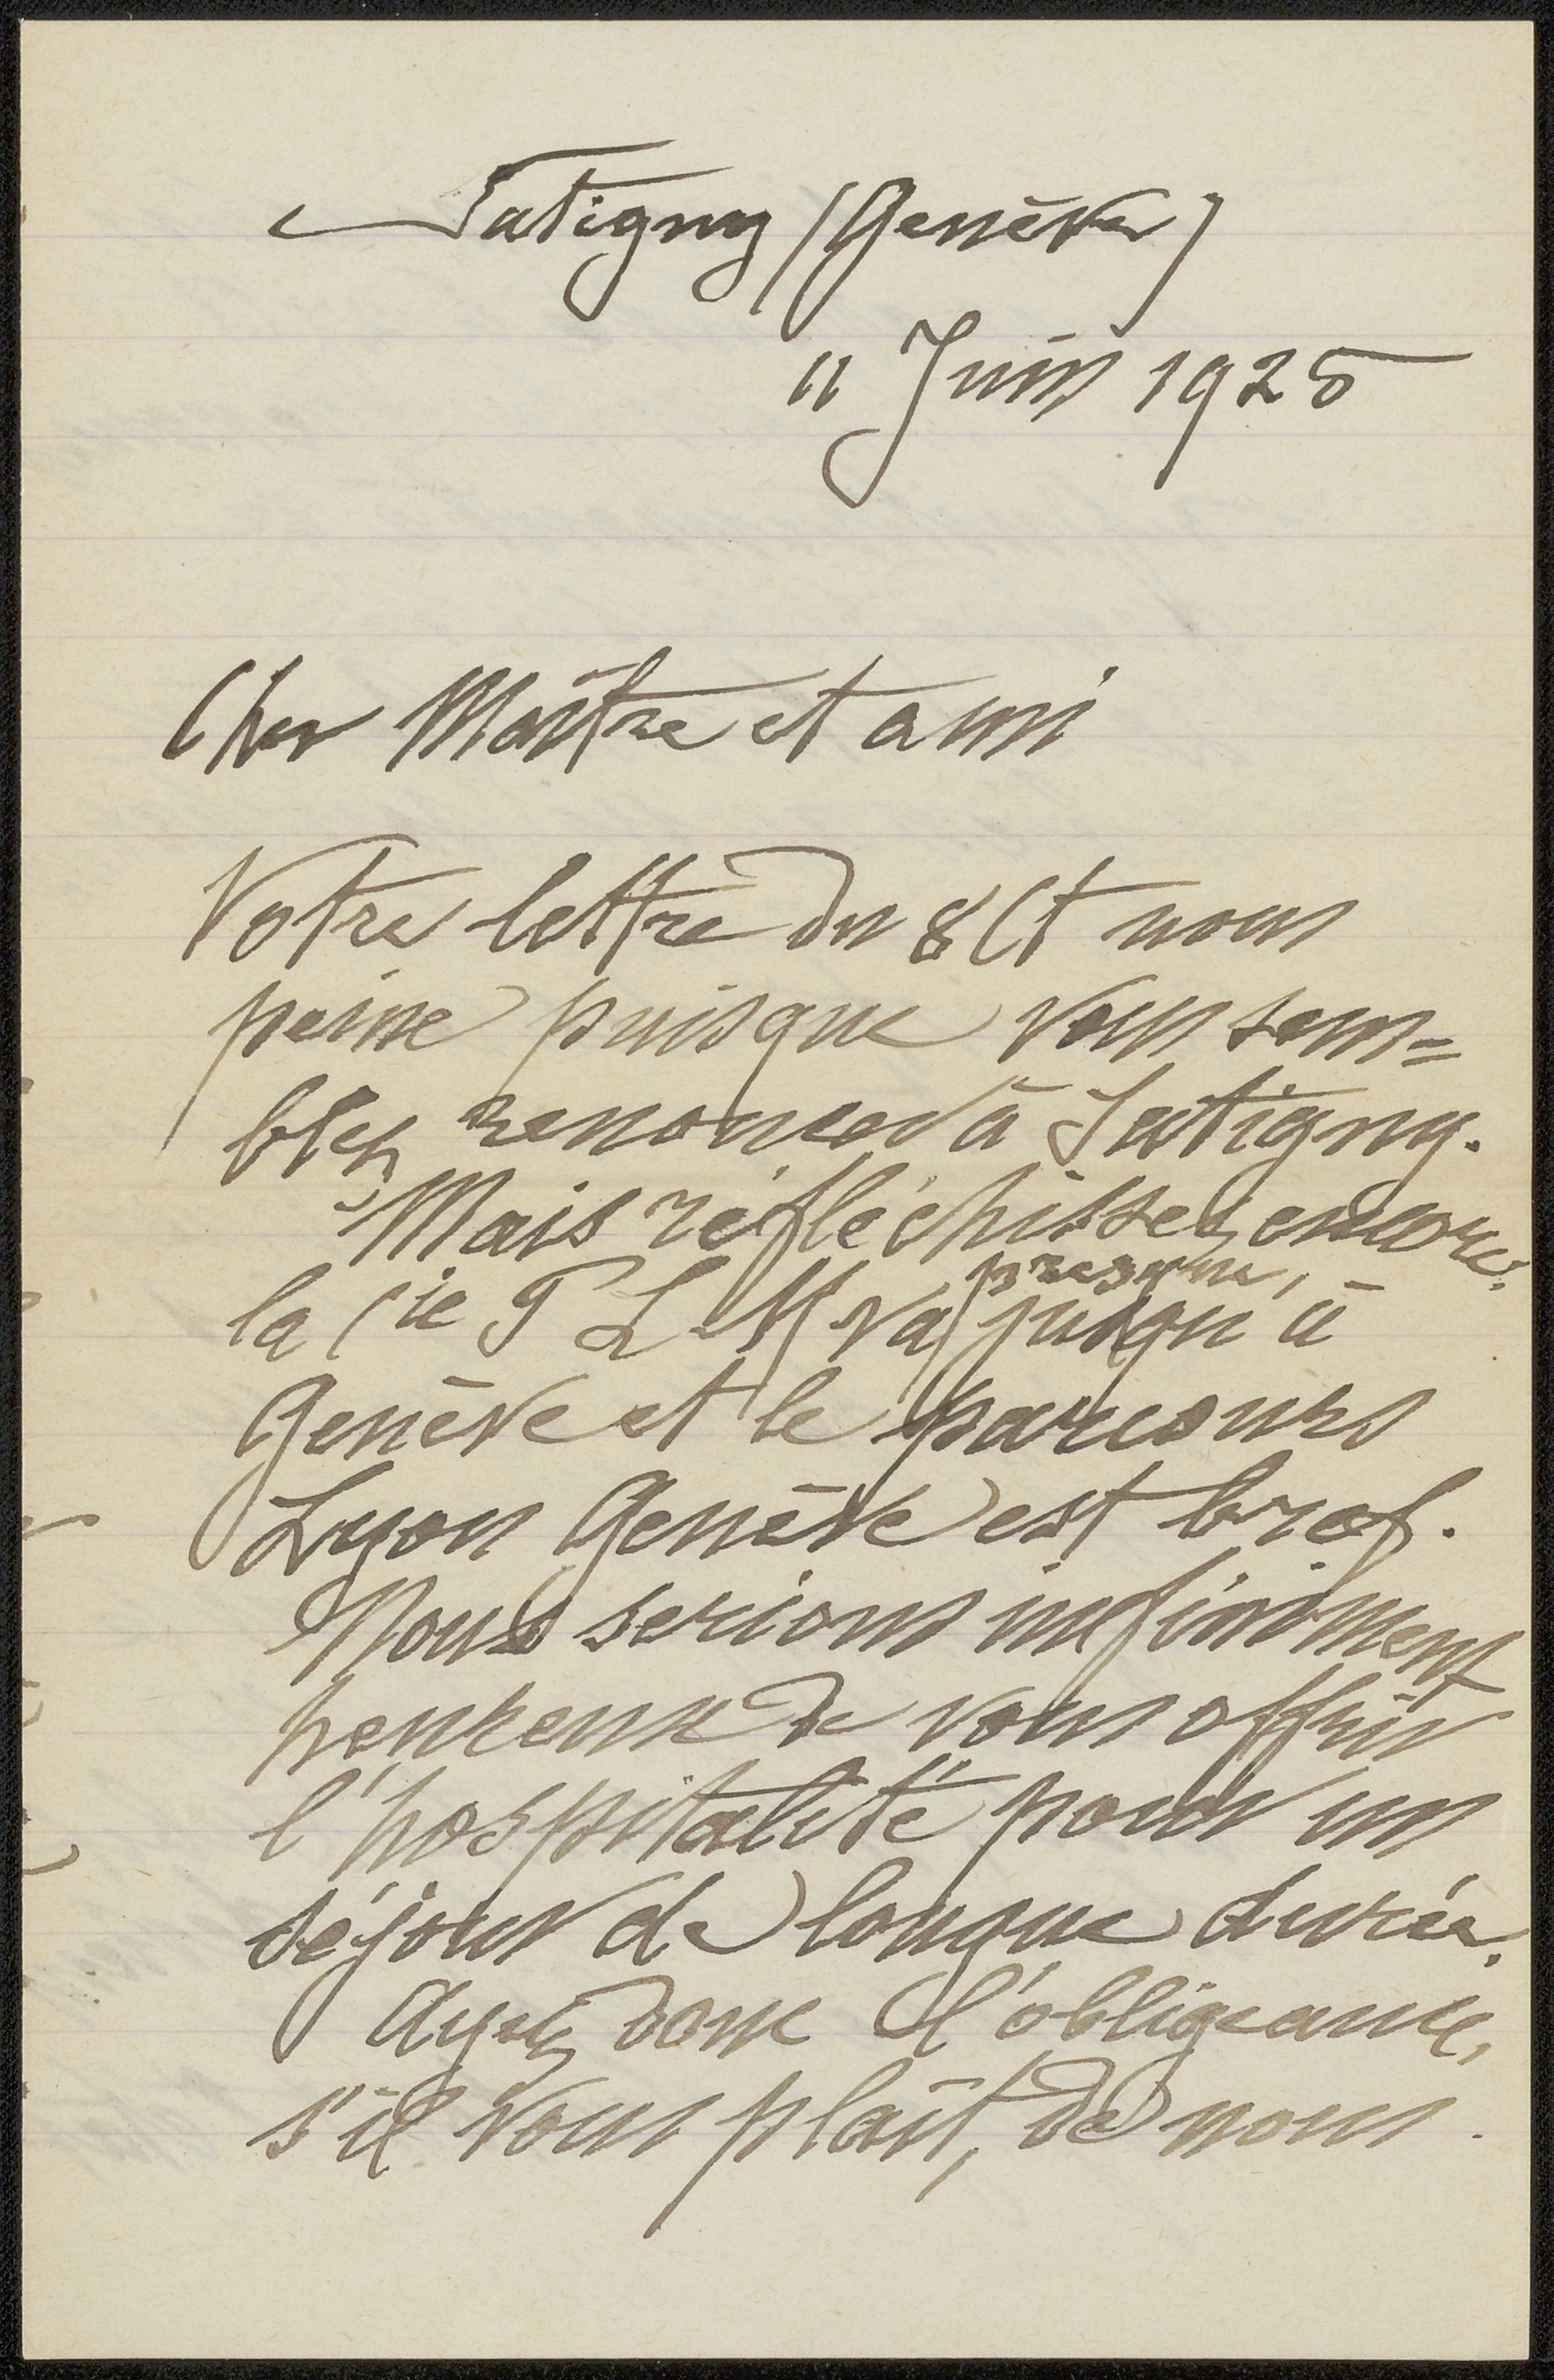 Satigny (Genève)
11 Juin 1925
Cher Maître et ami
Votre lettre du 8 Ct nous
peine puisque vous sem=
blez renoncer à Satigny.
Mais réfléchissez encore.
presque,
la Cie P L M va jusqu'à
Genève et le parcours
Lyon Genève est bref.
Nous serions infiniment
heureux de vous offrir
l'hospitalité pour un
séjour de longue durée.
Ayez donc l'obligeance,
s'il vous plaît, de nous